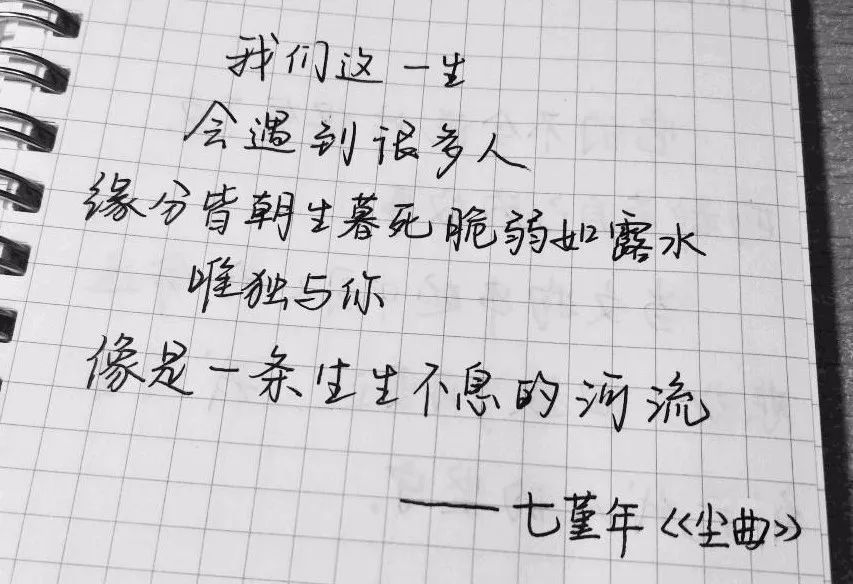 我们这一生
会遇到很多人
缘分皆朝生暮死脆弱如露水
唯独与你
像是一条生生不息的河流
——七堇年《尘曲》